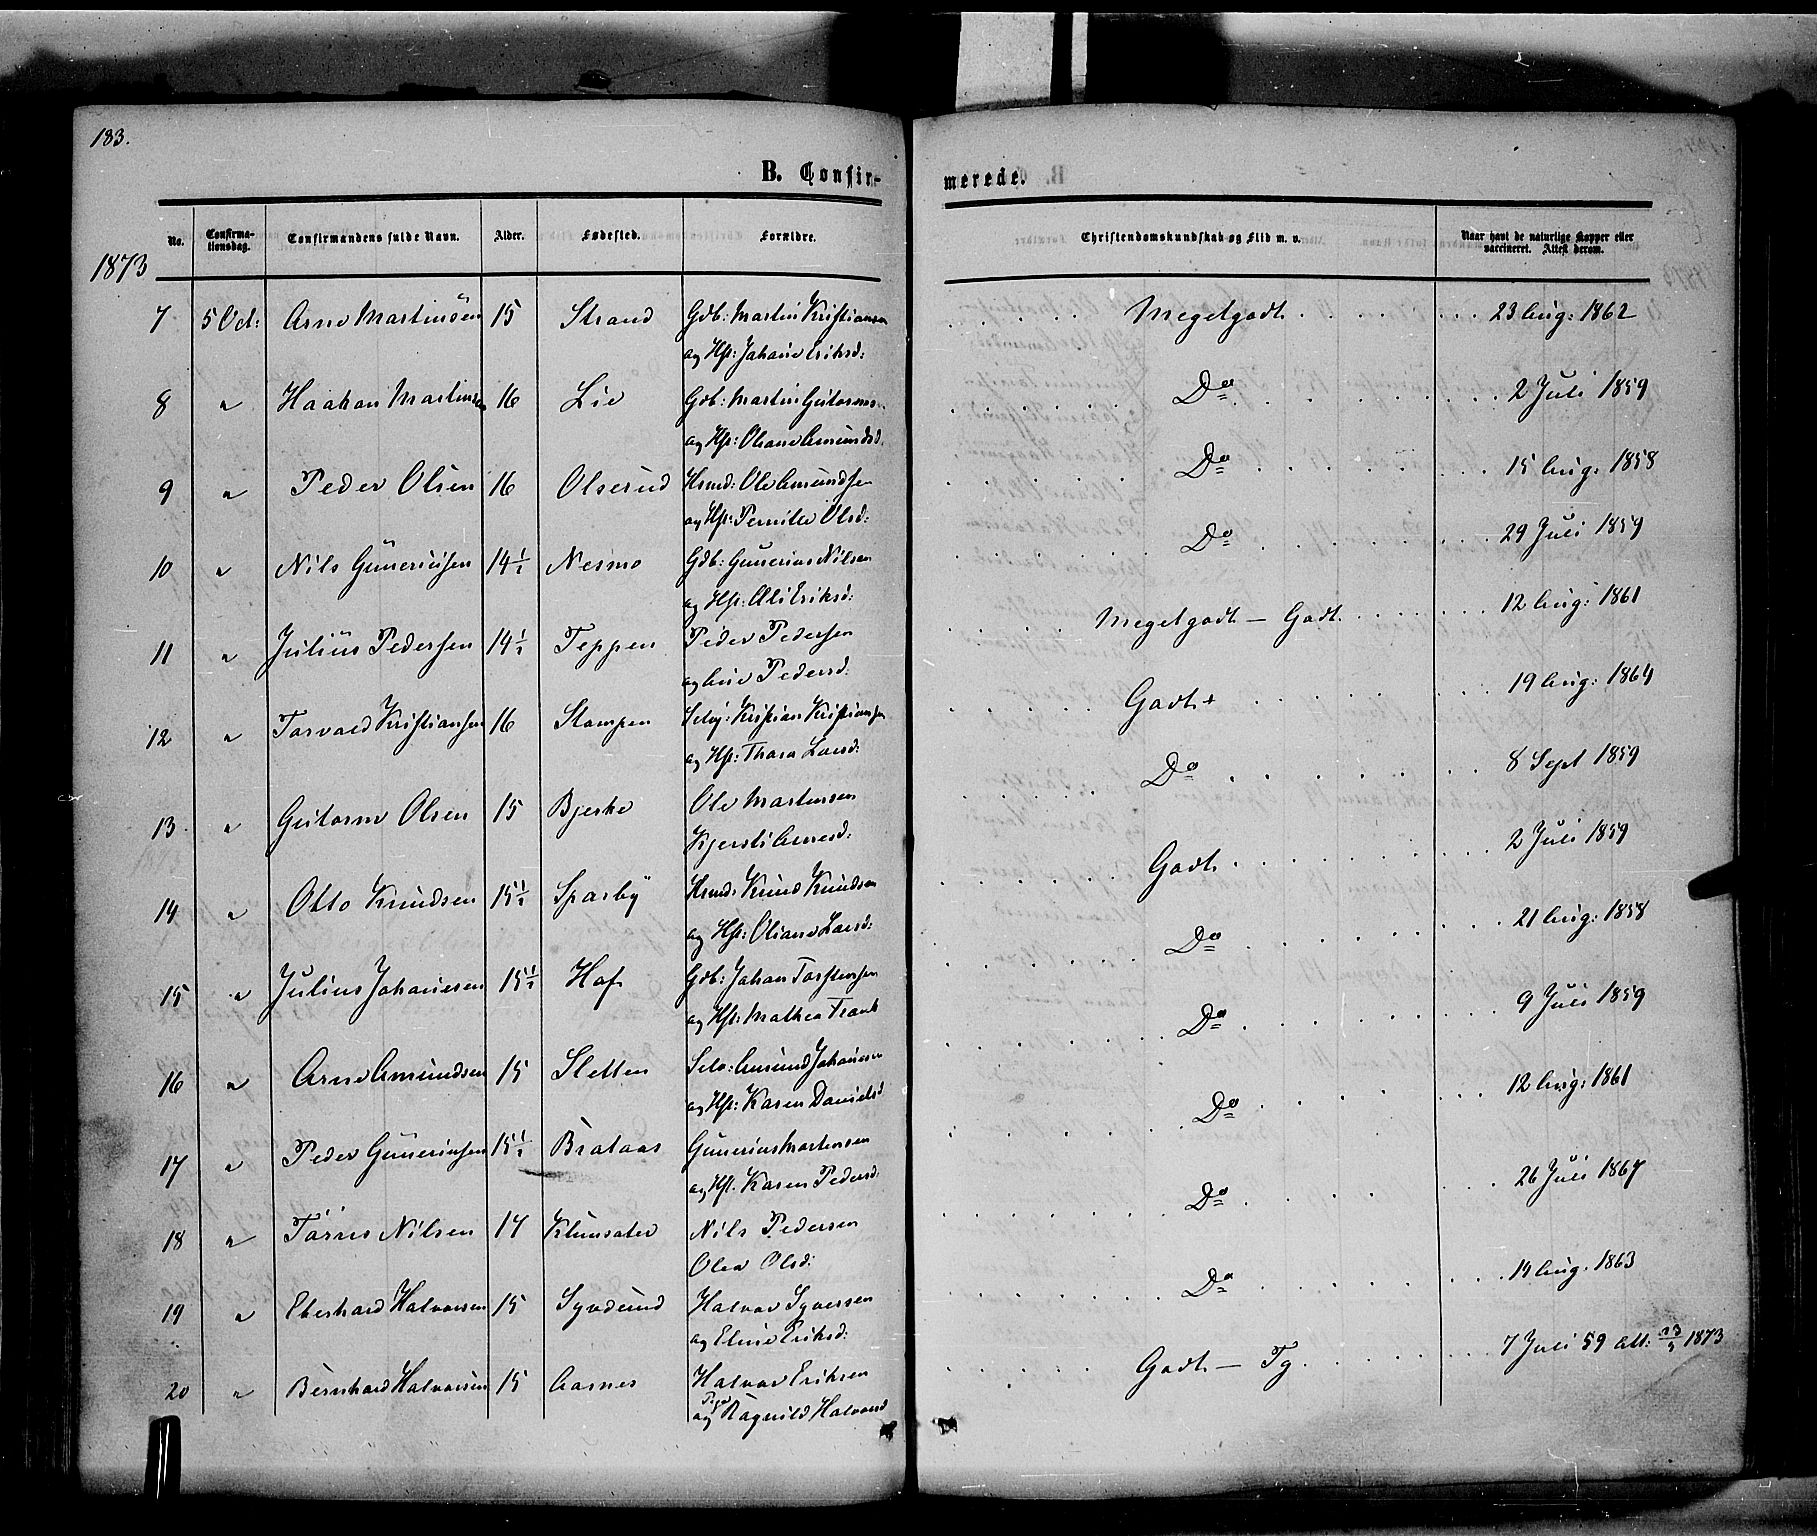 183.
B. Confir-
merede.
No. Confirma-tionsdag. Confirmandens fulde Navn. Alder. Fødested. Forældre. Christendomskundskab og Flid m. v. Naar havt de naturlige Kopper eller vaccineret. Attest derom.
1873
7 5 Oct: Arne Martinsen 15 Strand Gdb: Martin Kristiansen Megetgodt 23 Aug: 1862
og Hst: Johane Eriksd:
8 " Haakon Martinsen 16 Lie Gdb: Martin Gutorms Do 2 Juli 1859
og Hst: Oliane Amundsd.
9 " Peder Olsen 16 Olserud Hsmd: Ole Amundsen Do 15 Aug: 1858
og Hst: Pernille Olsd:
10 " Nils Guneriusen 14½ Nesmo Gdb: Gunerius Nilsen Do 29 Juli 1859
og Hst: Oli Eriksd:
11 " Julius Pedersen 14½ Teppen Peder Pedersen Megetgodt – Godt 12 Aug: 1861
og Ane Pedersd:
12 " Torvald Kristiansen 16 Stampen Selvj: Kristian Kristiansen Godt+ 19 Aug: 1864
og Hst: Thora Larsd:
13 " Gutorm Olsen 15 Bjerke Ole Martensen Do 8 Sept 1859
Kjersti Arnesd:
14 " Otto Knudsen 15½ Sparby Hsmd: Knud Knudsen Godt 2 Juli 1859
og Hst: Oliane Larsd:
15 " Julius Johanesen 15½ Hof Gdb: Johan Torstensen Do 21 Aug: 1858
og Hst: Mathea Frank
16 " Arne Amundsen 15 Sletten Selv: Amund Johanesen Do 9 Juli 1859
og Hst: Karen Danielsd
17 " Peder Guneriusen 15½ Brataas Gunerius Martensen Do 12 Aug: 1861
og Hst. Karen Pedersd:
18 " Torris Nilsen 14 Nils Pedersen Do 26 Juli 1867
Olea Olsd:
19 " Eberhard Halvorsen 15 Syverud Halvor Syversen Do 14 Aug. 1863
og Eline Eriksd:
20 " Bernhard Halvorsen 15 Aarnes Halvor Eriksen Godt – Tg 7 Juli 59 att: 1873
og Pige Ragnild Halvorsd